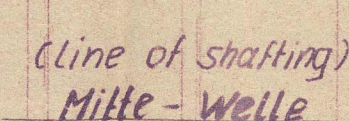 (line of shafting)
Mitte - Welle